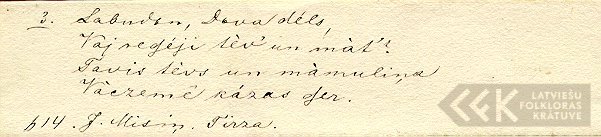 3. Labudon, Dova dēls,
Vaj regēji tēv' un māt'?
Tavis tēvs un māmuliņa
Vāczemē kāzas ģer.
614. J. Misiņ. Tirza.
LATVIEŠU
FOLKLORAS
KRĀTUVE